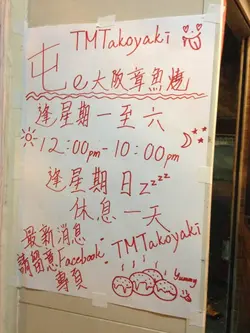 TMTakoyaki
屯e大阪章魚燒
逢星期一至六
12:00pm-10:00pm
逢星期日zzzz
休息一天
最新消息 -
請留意Facebook - TMTakoyaki
專頁
Yummy